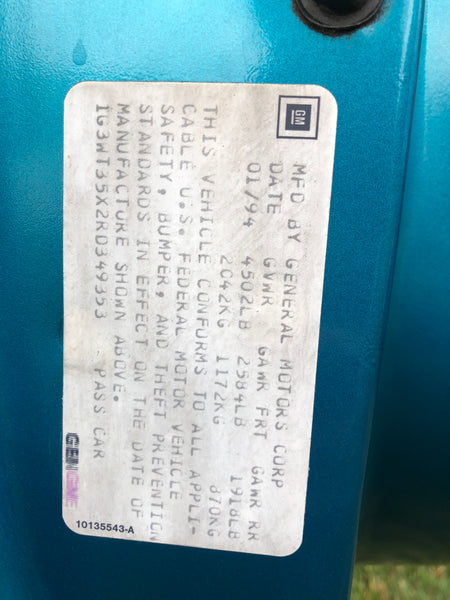 GM
MFD BY GENERAL MOTORS CORP
DATE GVWR GAWR FRT GAWR RR
01/94 4502LB 2584LB 1918LB
2042KG 1172KG 870KG
THIS VEHICLE CONFORMS TO ALL APPLI-
CABLE U.S. FEDERAL MOTOR VEHICLE
SAFETY, BUMPER, AND THEFT PREVENTION
STANDARDS IN EFFECT ON THE DATE OF
MANUFACTURE SHOWN ABOVE.
1G3WT35X2RD349353 PASS CAR
10135543-A